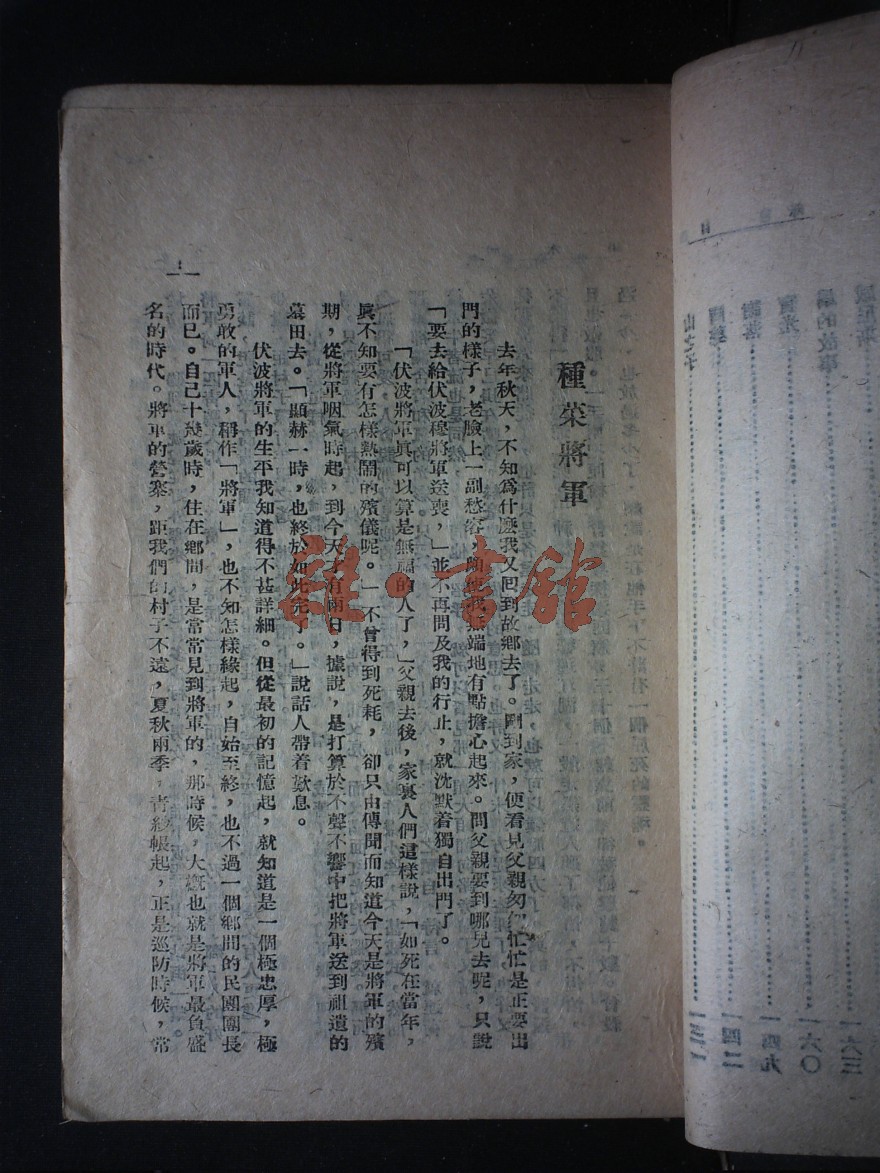 種菜將軍
去年秋天，不知爲什麽我又回到故鄉去了。剛到家，便看見父親匆忙忙是正要出
門的樣子，老臉上一副愁容，我無端地有點擔心起來。問父親要到哪兒去呢，只說
「要去給伏波將軍送喪，」並不再問及我的行止，就沈默着獨自出門了。
「伏波將軍眞可以算是無福的人了，」父親去後，家裏人們這樣說，「如死在當年，
眞不知要有怎樣熱鬧的殯儀呢。」不曾得到死耗，卻只由傳聞而知道今天是將軍的殯
期，從將軍咽氣時起，到今天才有兩日，據說，是打算於不聲不響中把將軍送到祖遺的
墓田去。「顯赫一時，也終於如此完了。」說話人帶着歎息。
伏波將軍的生平我知道得不甚詳細。但從最初的記憶起，就知道是一個極忠厚，極
勇敢的軍人，稱作「將軍」，也不知怎樣緣起，自始至終，也不過一個鄉間的民團團長
而已。自己十幾歲時，住在鄉間，是常常見到將軍的，那時候，大概也就是將軍最負盛
名的時代。將軍的營寨，距我們的村子不遠，夏秋兩季，青紗帳起，正是巡防時候，常
一
雜·書館